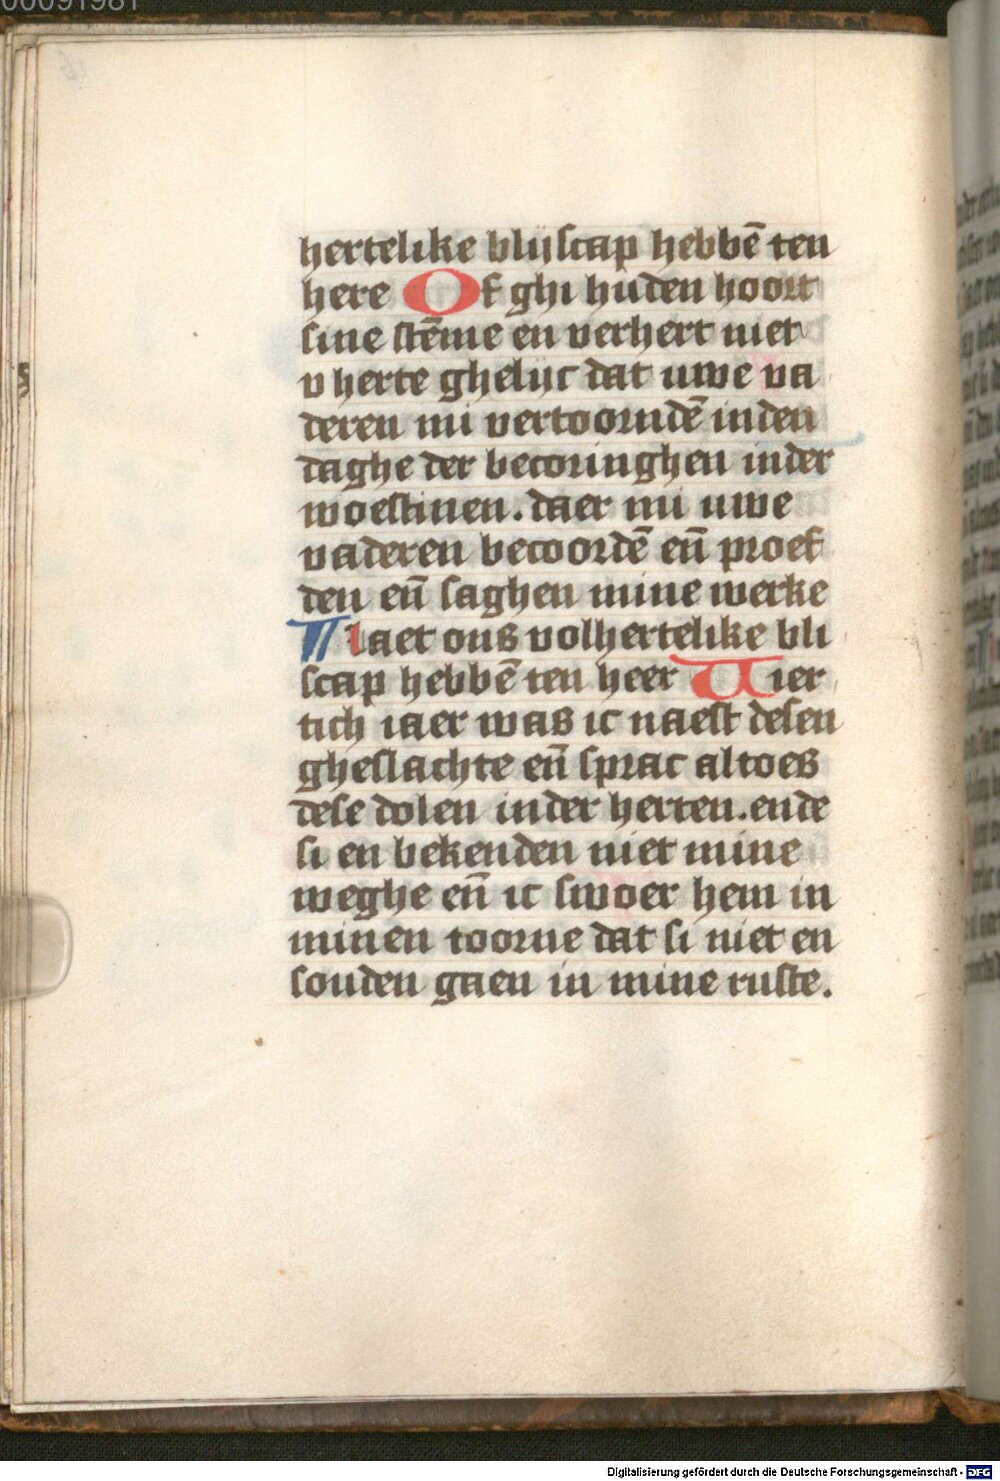 00091981
hertelike blijscap hebbē ten
here Of ghi huden hoort
sine stēme en verhert niet
v herte ghelijc dat uwe va
deren mi vertoorndē inden
daghe der becoringhen inder
woestinen. daer mi uwe
vaderen becoordē eñ proef
den eñ saghen mine werke
laet ons volhertelike bli
scap hebbē ten heer Vier
tich iaer was ic naest desen
gheslachte eñ sprac altoes
dese dolen inder herten. ende
si en bekenden niet mine
weghe eñ ic swoer hem in
minen toorne dat si niet en
souden gaen in mine ruste.
Digitalisierung gefördert durch die Deutsche Forschungsgemeinschaft - DFG